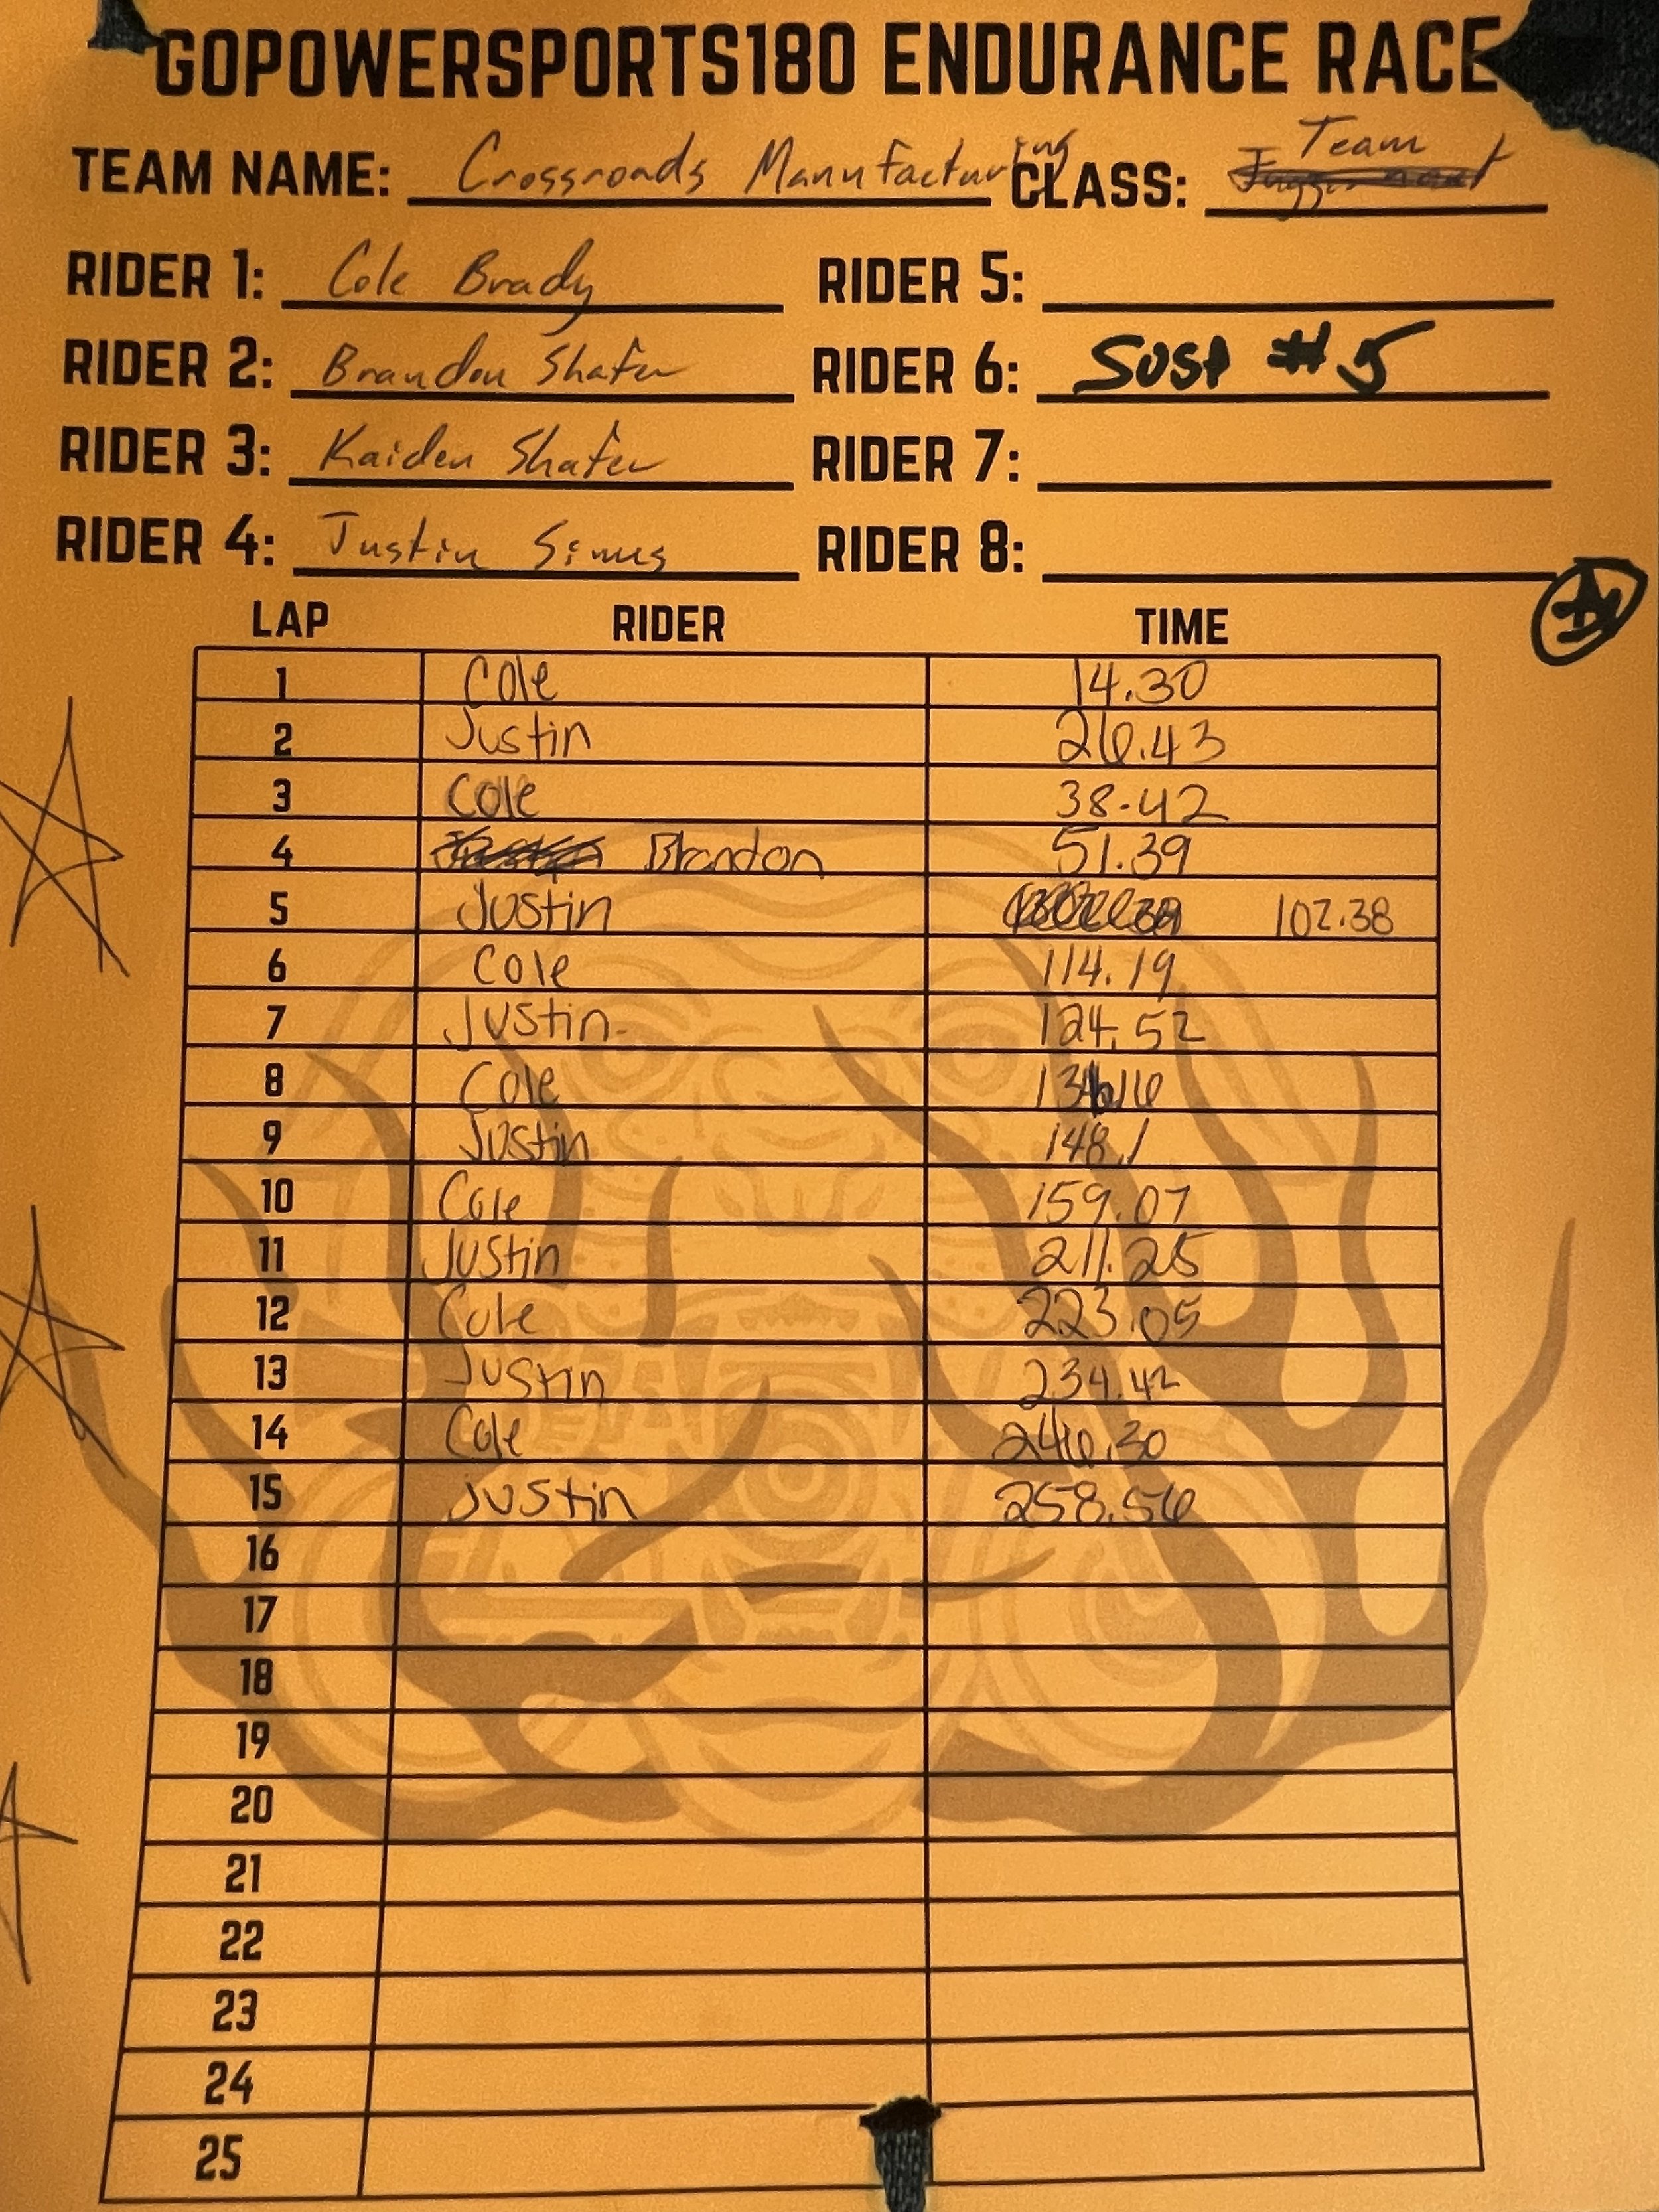 GOPOWERSPORTS180 ENDURANCE RACE
TEAM NAME: Crossroads Manufacturing CLASS: Team
RIDER 1: Cole Brady RIDER 5:
RIDER 2: Brandon Shafer RIDER 6: SUSP #5
RIDER 3: Kaiden Shafer RIDER 7:
RIDER 4: Justin Simus RIDER 8:
LAP RIDER TIME
1 Cole 14.30
2 Justin 26.43
3 Cole 38.42
4 Brandon 51.39
5 Justin 102.38
6 Cole 114.19
7 Justin 124.52
8 Cole
9 Justin 148.1
10 Cole 159.07
11 Justin 211.25
12 Cole 223.05
13 Justin 234.42
14 Cole 246.30
15 Justin 258.56
16
17
18
19
20
21
22
23
24
25